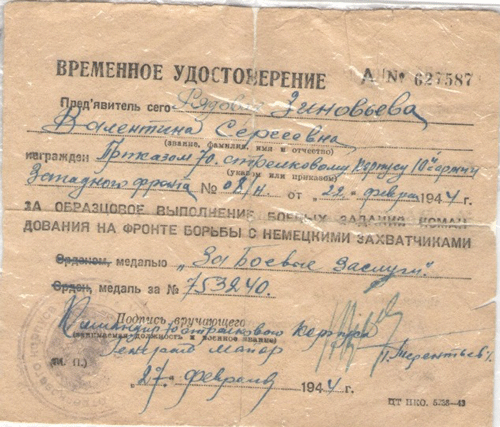 ВРЕМЕННОЕ УДОСТОВЕРЕНИЕ А № 627587
Пред'явитель сего Рядовой Зиновьева
Валентина Сергеевна
(звание, фамилия, имя и отчество)
награжден Приказом 70 стрелковому корпусу 10й армии
(указом или приказом)
Западного фронта № 08/н. от „22" февраля 1944 г.
ЗА ОБРАЗЦОВОЕ ВЫПОЛНЕНИЕ БОЕВЫХ ЗАДАНИЙ КОМАН
ДОВАНИЯ НА ФРОНТЕ БОРЬБЫ С НЕМЕЦКИМИ ЗАХВАТЧИКАМИ
Орденом, медалью „За Боевые Заслуги".
Орден, медаль за № 753240.
Подпись вручающего
Командир 70 стрелкового корпуса
(занимаемая должность и военное звание)
Генерал майор Терентьев
(М. П.)
„27" февраля 1944 г.
ЦТ НКО. 5736—43